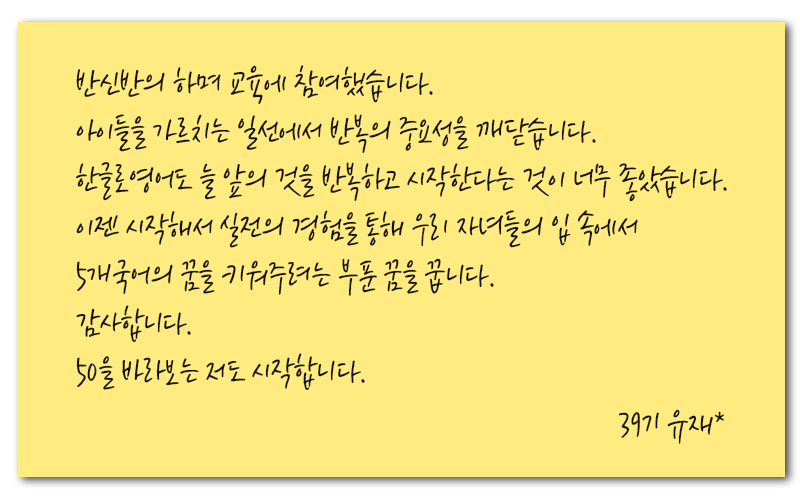 반신반의 하며 교육에 참여했습니다.
아이들을 가르치는 일선에서 반복의 중요성을 깨닫습니다.
한글로영어도 늘 앞의 것을 반복하고 시작한다는 것이 너무 좋았습니다.
이젠 시작해서 실전의 경험을 통해 우리 자녀들의 입 속에서
5개국어의 꿈을 키워주려는 부푼 꿈을 꿉니다.
감사합니다.
50을 바라보는 저도 시작합니다.
39기 유재*